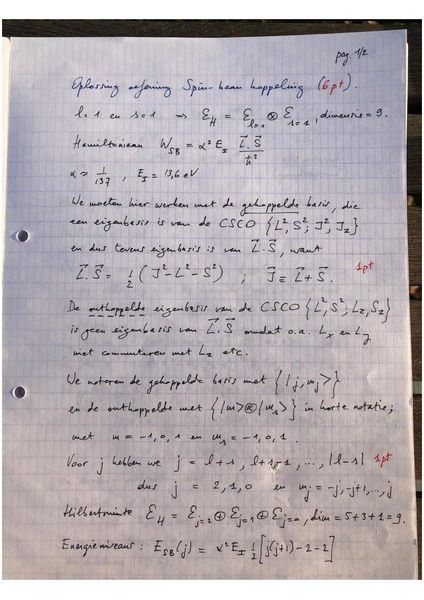 pag. 1/2
Oplossing oefening Spin-baan koppeling (6pt).
l=1 en s=1 ⇒ Ɛ_H = Ɛ_{l=1} ⊗ Ɛ_{s=1}, dimensie = 9.
Hamiltoniaan W_{SB} = α² E_I \frac{\vec{L}.\vec{S}}{ħ²}
α ≈ \frac{1}{137} , E_I = 13,6 eV
We moeten hier werken met de gekoppelde basis, die
een eigenbasis is van de CSCO {L², S²; J², J_z}
en dus tevens eigenbasis is van \vec{L}.\vec{S}, want
\vec{L}.\vec{S} = \frac{1}{2}(J²-L²-S²) ; \vec{J} = \vec{L}+\vec{S}. 1pt
De ontkoppelde eigenbasis van de CSCO {L², S²; L_z, S_z}
is geen eigenbasis van \vec{L}.\vec{S} omdat o.a. L_x en L_y
niet commuteren met L_z etc.
We noteren de gekoppelde basis met {|j, m_j>}
en de ontkoppelde met {|m>⊗|m_s>} in korte notatie;
met m = -1, 0, 1 en m_s = -1, 0, 1.
Voor j hebben we j = l+s, l+s-1, ..., |l-s| 1pt
dus j = 2, 1, 0 en m_j = -j, -j+1, ..., j
Hilbertruimte Ɛ_H = Ɛ_{j=2} ⊕ Ɛ_{j=1} ⊕ Ɛ_{j=0}, dim = 5+3+1 = 9.
Energieniveaus: E_{SB}(j) = α² E_I \frac{1}{2}[j(j+1)-2-2]